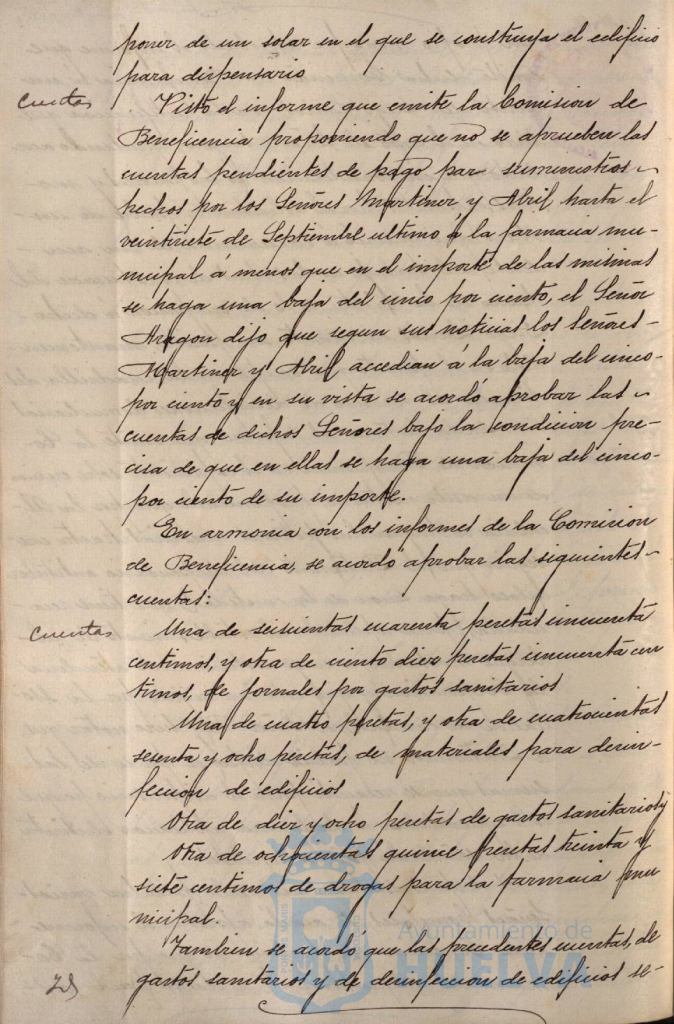 poner de un solar en el que se construya el edificio
para dispensario
Cuentas
Visto el informe que emite la Comision de
Beneficencia proponiendo que no se aprueben las
cuentas pendientes de pago por suministros
hechos por los Señores Martinez y Abril hasta el
veintisiete de Septiembre ultimo á la farmacia mu-
nicipal á menos que en el importe de las mismas
se haga una baja del cinco por ciento, el Señor
Aragon dijo que segun sus noticias los Señores
Martinez y Abril accedian á la baja del cinco
por ciento y en su vista se acordó aprobar las
cuentas de dichos Señores bajo la condicion pre-
cisa de que en ellas se haga una baja del cinco
por ciento de su importe.
En armonia con los informes de la Comision
de Beneficencia, se acordó aprobar las siguientes
cuentas:
Cuentas
Una de seiscientas cuarenta pesetas cincuenta
centimos, y otra de ciento diez pesetas cincuenta cen
timos, de jornales por gastos sanitarios
Una de cuatro pesetas, y otra de cuatrocientas
sesenta y ocho pesetas, de materiales para desin-
feccion de edificios
Otra de diez y ocho pesetas de gastos sanitarios y
Otra de ochocientas quince pesetas treinta y
siete centimos de drogas para la farmacia mu
nicipal.
Tambien se acordó que las precedentes cuentas, de
gastos sanitarios y de desinfeccion de edificios se-
Ayuntamiento de
HUELVA